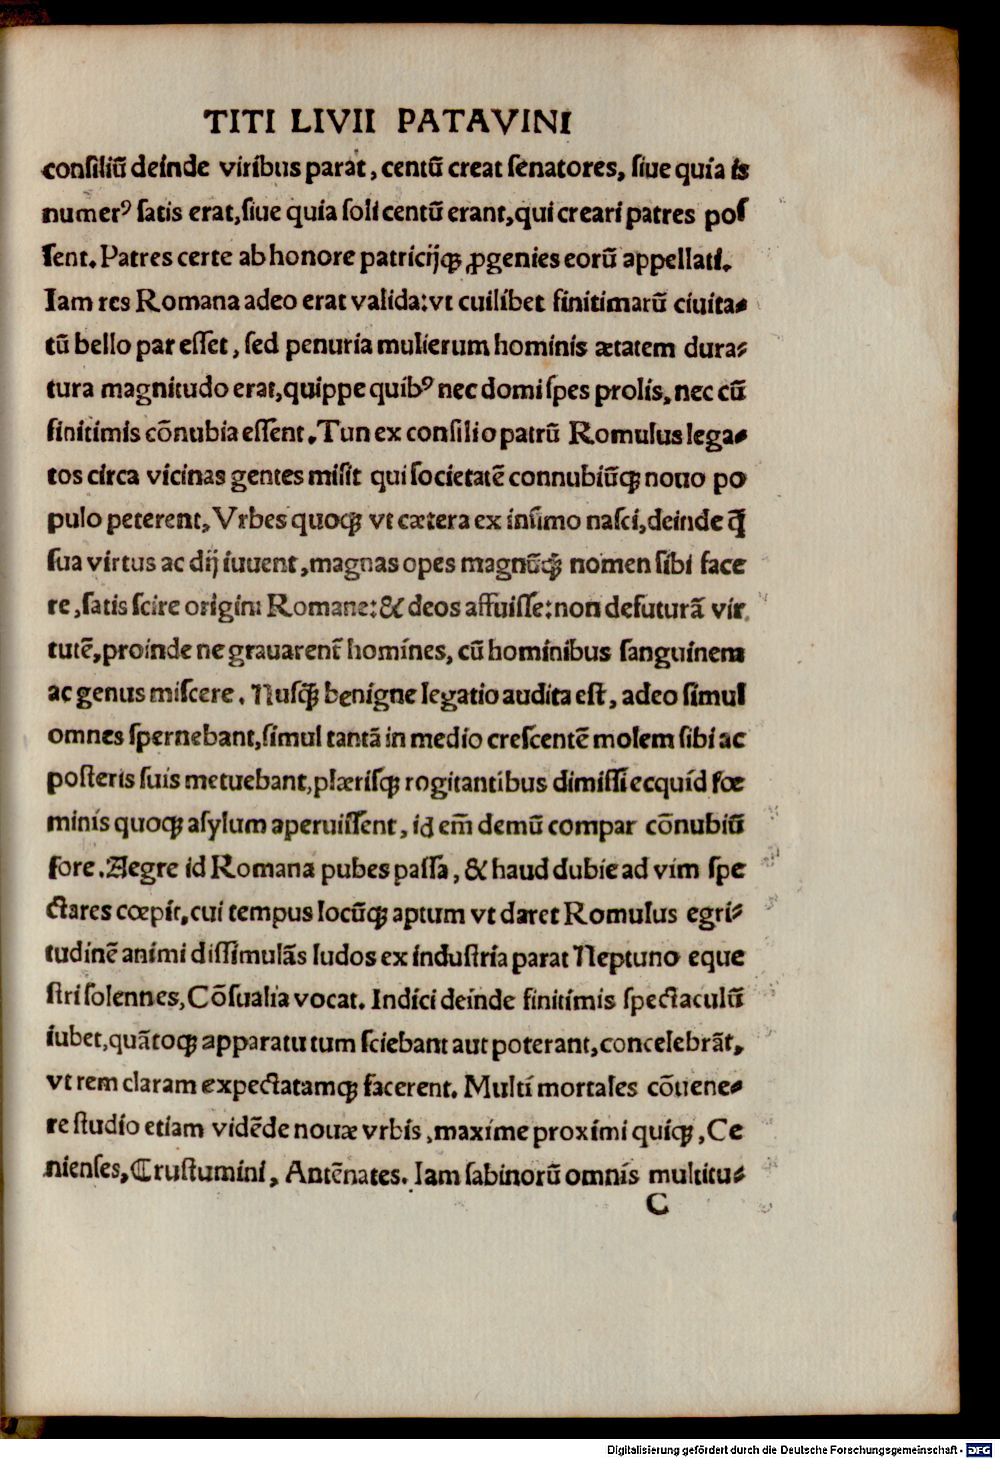 TITI LIVII PATAVINI
consiliū deinde viribus parat, centū creat senatores, siue quia is
numerꝰ satis erat, siue quia soli centū erant, qui creari patres pos
sent. Patres certe ab honore patricijqꝫ ꝓgenies eorū appellati.
Iam res Romana adeo erat valida: vt cuilibet finitimarū ciuita-
tū bello par esset, sed penuria mulierum hominis ætatem dura-
tura magnitudo erat, quippe quibꝰ nec domi spes prolis, nec cū
finitimis cōnubia essent. Tun ex consilio patrū Romulus lega-
tos circa vicinas gentes misit qui societatē connubiūqꝫ nouo po
pulo peterent, Vrbes quoqꝫ vt cætera ex infimo nasci, deinde q̄
sua virtus ac dij iuuent, magnas opes magnūqꝫ nomen sibi face
re, satis scire origini Romane: & deos affuisse: non defuturā vir
tutē, proinde ne grauarent̄ homines, cū hominibus sanguinem
ac genus miscere. Nusq̄ benigne legatio audita est, adeo simul
omnes spernebant, simul tantā in medio crescentē molem sibi ac
posteris suis metuebant, plærisqꝫ rogitantibus dimissi ecquid fœ
minis quoqꝫ asylum aperuissent, id em̄ demū compar cōnubiū
fore. Aegre id Romana pubes passa, & haud dubie ad vim spe
ctares cœpit, cui tempus locūqꝫ aptum vt daret Romulus egri-
tudinē animi dissimulās ludos ex industria parat Neptuno eque
stri solennes, Cōsualia vocat. Indici deinde finitimis spectaculū
iubet, quātoqꝫ apparatu tum sciebant aut poterant, concelebrāt,
vt rem claram expectatamqꝫ facerent. Multi mortales cōuene-
re studio etiam vidēde nouæ vrbis, maxime proximi quiqꝫ, Ce
nienses, Crustumini, Antēnates. Iam sabinorū omnis multitu-
C
Digitalisierung gefördert durch die Deutsche Forschungsgemeinschaft - DFG